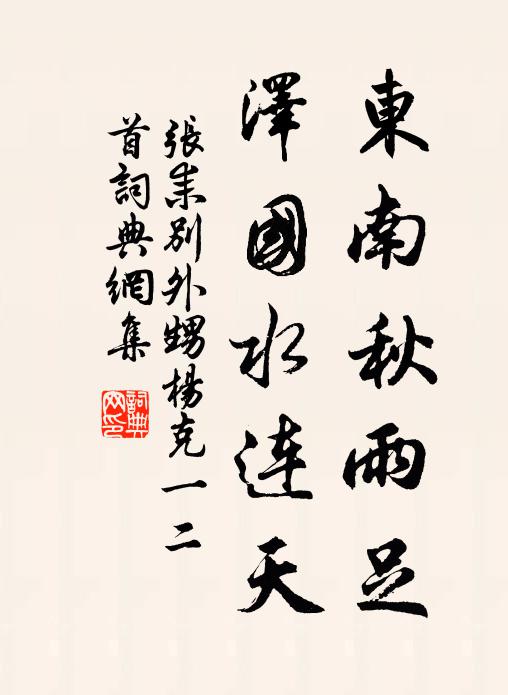 東南秋雨足
澤國水連天
張耒別外甥楊克一二
首詞典網集
詞典
网印